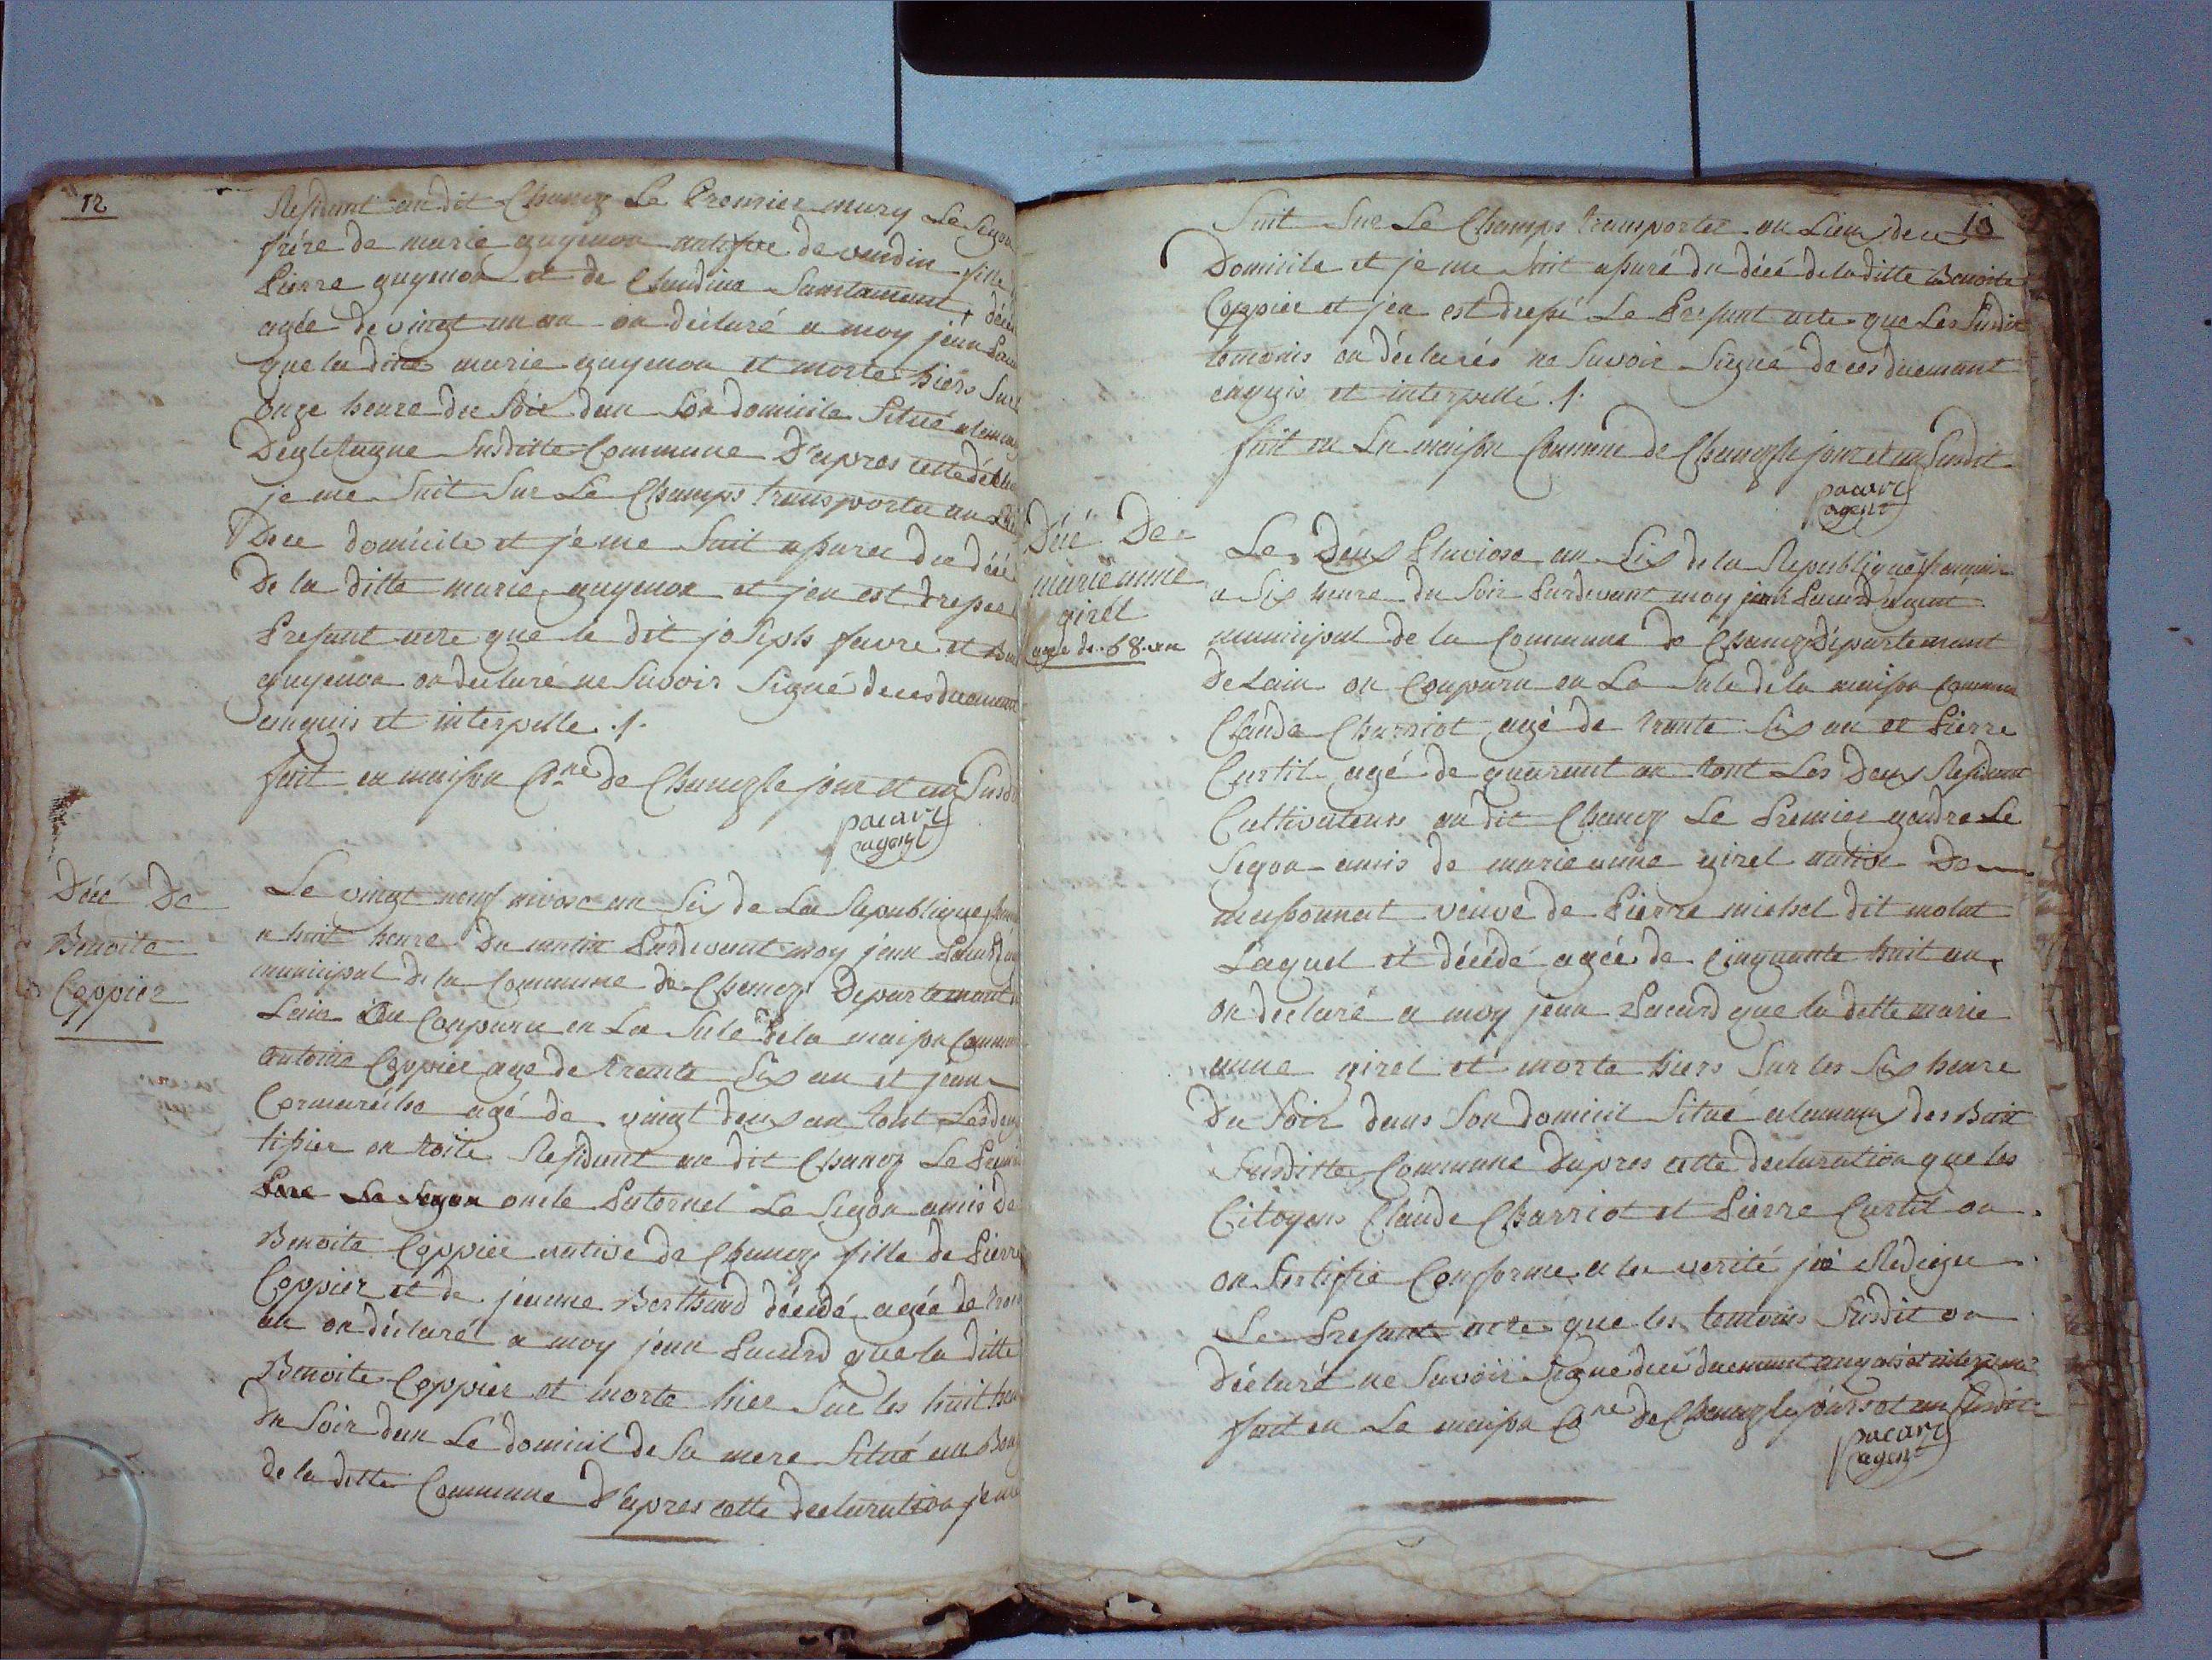 12
Residant au dit Chanoz Le Premier mary Le Segon
frére de marie guyenon native de vendin fille
Pierre guyenon et de Claudine décé
agée de vingt un an on déclaré a moy jean Pacar
que la ditte marie guyenon et morte hiers Sur
onze heure du Soir dan Son domicile Situé
Susditte Commune D'apres cette décl
je me Suit Sur Le Champs transporter au Lie
De ce domicile et je me Suit asurer du décé
De la ditte marie guyenon et jen est dressé
Presant acte que le dit joseph favre et
guyenon on declaré ne Savoir Signé de ces duemant
enquis et interpelle ./.
fait en maison Cne de Chanoz le jour et an Susd
pacard
agent
Décé De
Benoite
Coppier
Le vingt neuf nivose an Six de La Republique
a huit heure Du matin Pardevant moy jean Pacard
municipal de la Commune de Chanoz Departemant
Lain on Conparu en La Sale de la maison Commun
Antoine Coppier age de trante Six an et jean
agé de vingt deux an tout Les deux
tissier en toile Residant au dit Chanoz Le Premie
Le Segon oncle Paternel Le Segon amis de
Benoite Coppier native de Chanoz fille de Pierre
Coppier et de jeanne Berthaud décédé agée de trois
an on déclaré a moy jean Pacard que la ditte
Benoite Coppier et morte hier Sur les huit heu
du Soir dan Le domicil de Sa mere Situé au Bour
de la ditte Commune D'apres cette declaration je me
13
Suit Sur Le Champs transporter au Lieu de ce
Domicile et je me Suit asuré du décé de la ditte Benoite
Coppier et jen est dressé Le Presant acte que Les Susdit
temoins on déclarés ne Savoir Signé de ces duemant
enquis et interpellé ./.
fait en La maison Commune de Chanoz le jour et an Susdit
pacard
agent
Décé De
marie anne
girel
agé de 68 an
Le Deux Pluviose an Six de la Republique françoise
a Six heure du Soir Pardevant moy jean Pacard agent
municipal de la Commune de Chanoz Départemant
De Lain on Conparu en La Sale de la maison Commun
Claude Charriot agé de trante Six an et Pierre
Curtil agé de quarant an tout Les Deux Residant
Cultivateurs au dit Chanoz Le Premier gendre Le
Segon amis de marie anne girel native De
messonnat veuve de Pierre michel dit molat
Laquel et décédé agée de Cinquante huit an
on declaré a moy jean Pacard que la ditte marie
anne girel et morte hiers Sur les Six heure
Du Soir dans Son domicil Situé
Susditte Commune Dapres cette declaration que les
Citoyens Claude Charriot et Pierre Curtil on
on Sertifié Conforme a la verité jai Redigee
Le Presant acte que les temoins Susdit on
Déclaré ne Savoir Signé de ce duemant enquis et interpelle
fait en La maison Cne De Chanoz le jours et an Susdit
pacard
agent